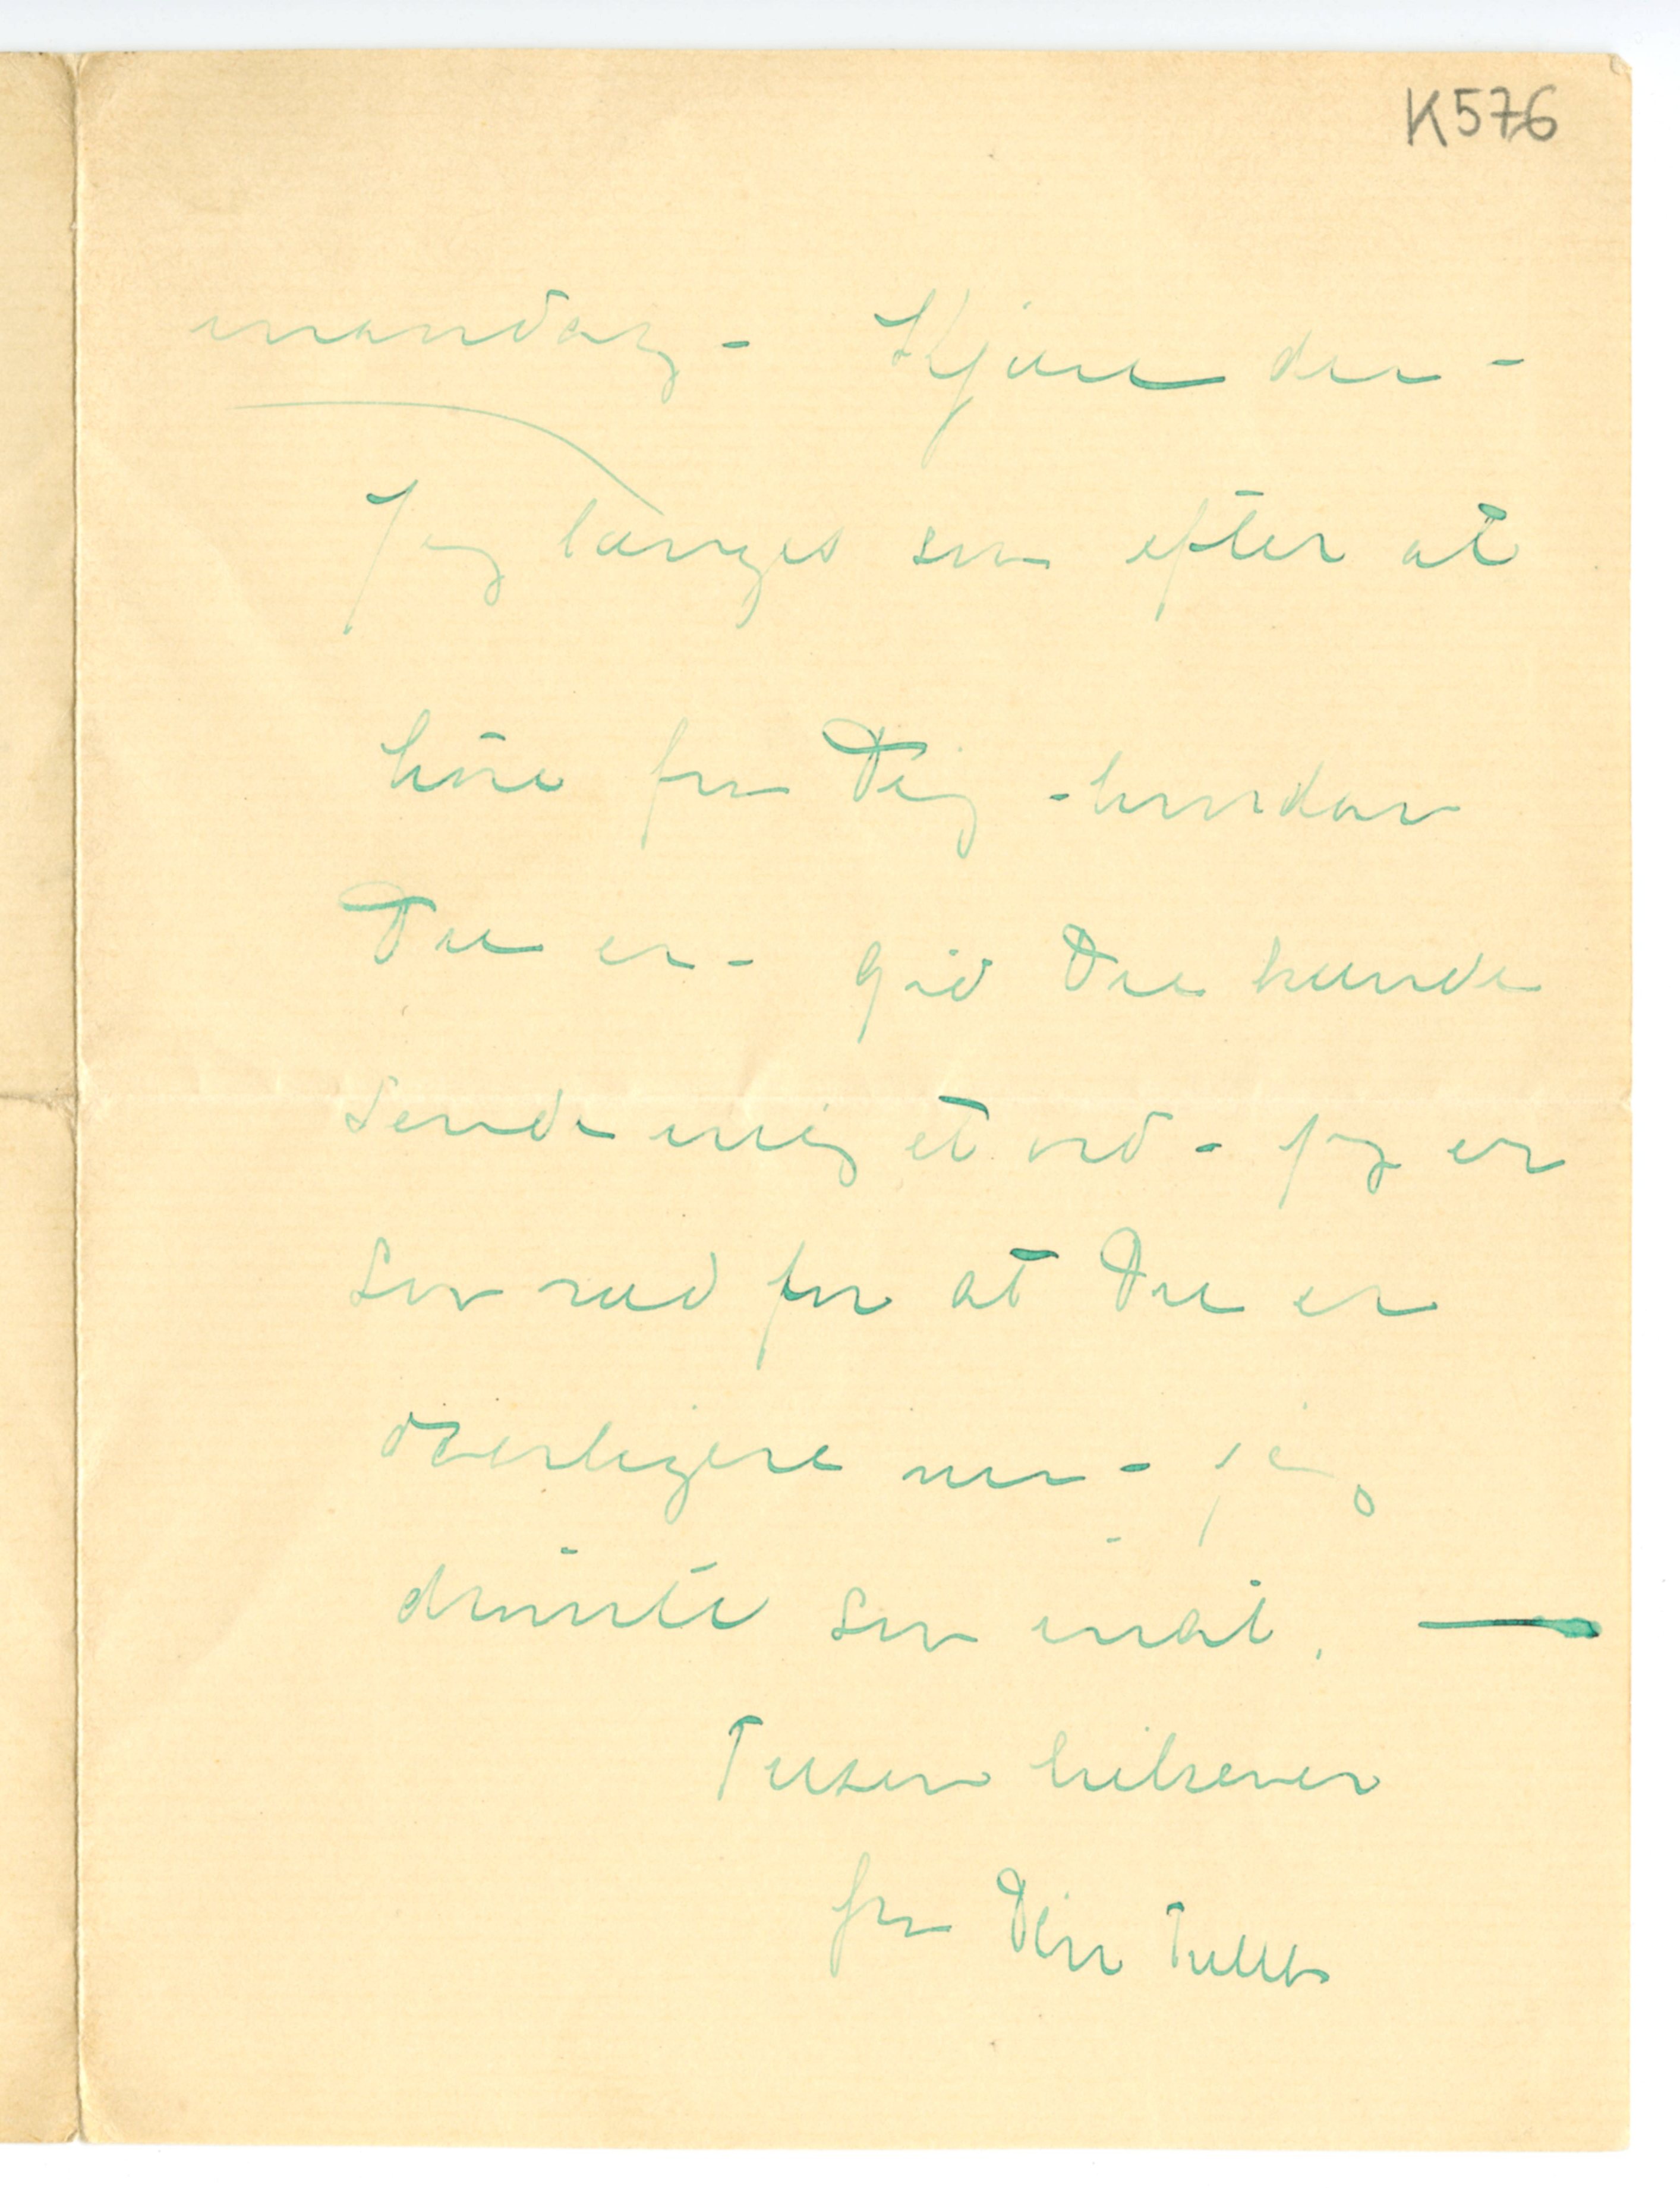 K576
mandag - Kjære du -
Jeg længes saa efter at
høre fra Dig - hvordan
Du er - gid Du kunde
sende mig et ord - jeg er
saa ræd for at Du er
daarligere nu - jeg
drømte saa inat. —
Tusen hilsener
fra Din Tulla